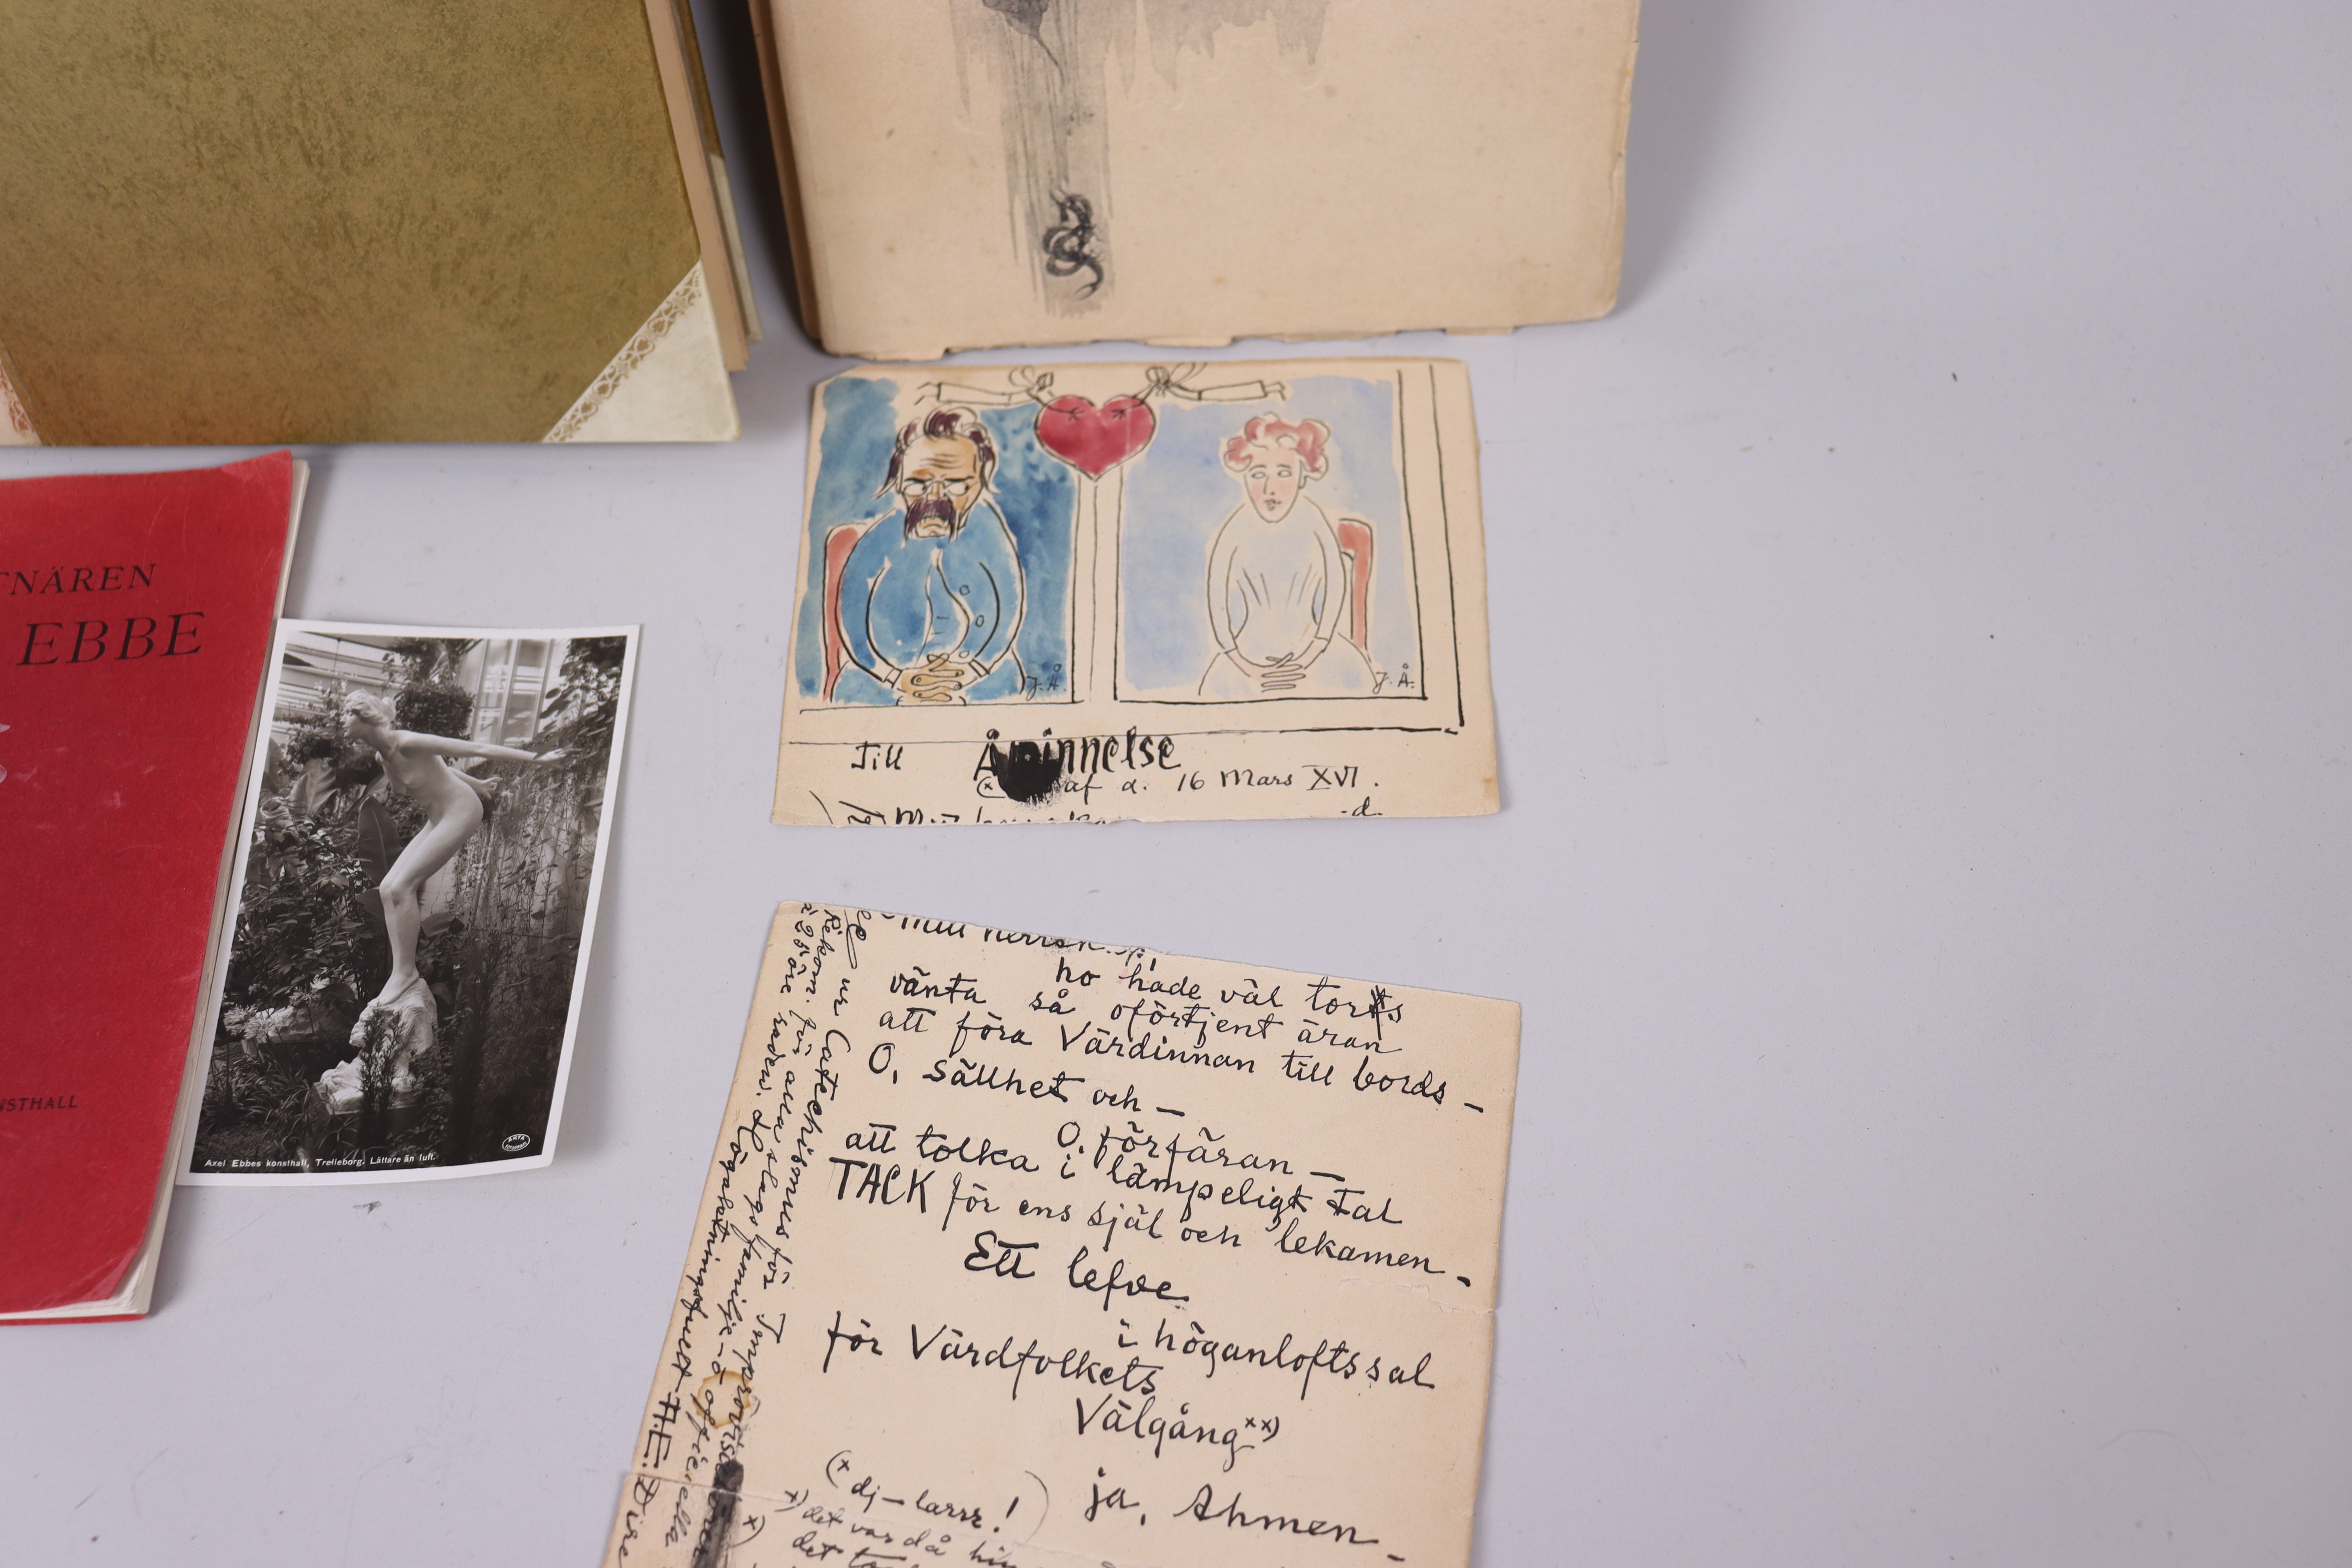 TNÄREN
EBBE
NSTHALL
Axel Ebbes konsthall, Trelleborg. Lättare än luft.
J. Å.
J. Å.
Till
innelse
af d. 16 Mars XVI.
-d.
ho hade väl tors
vänta så oförtjent äran
att föra Värdinnan till bords –
O, sällhet och –
O, förfäran –
att tolka i lämpeligt tal
TACK för ens själ och lekamen –
Ett lefve
i höganloftssal
för Värdfolkets
Välgång xx)
ja, Ahmen –
(x dj – larrr!)
x) det var då
det
ur Catechismus för
Rekom. för alla slags familje- o officiella
à 25 öre raden. Högaktningsfullt A.E. Dire